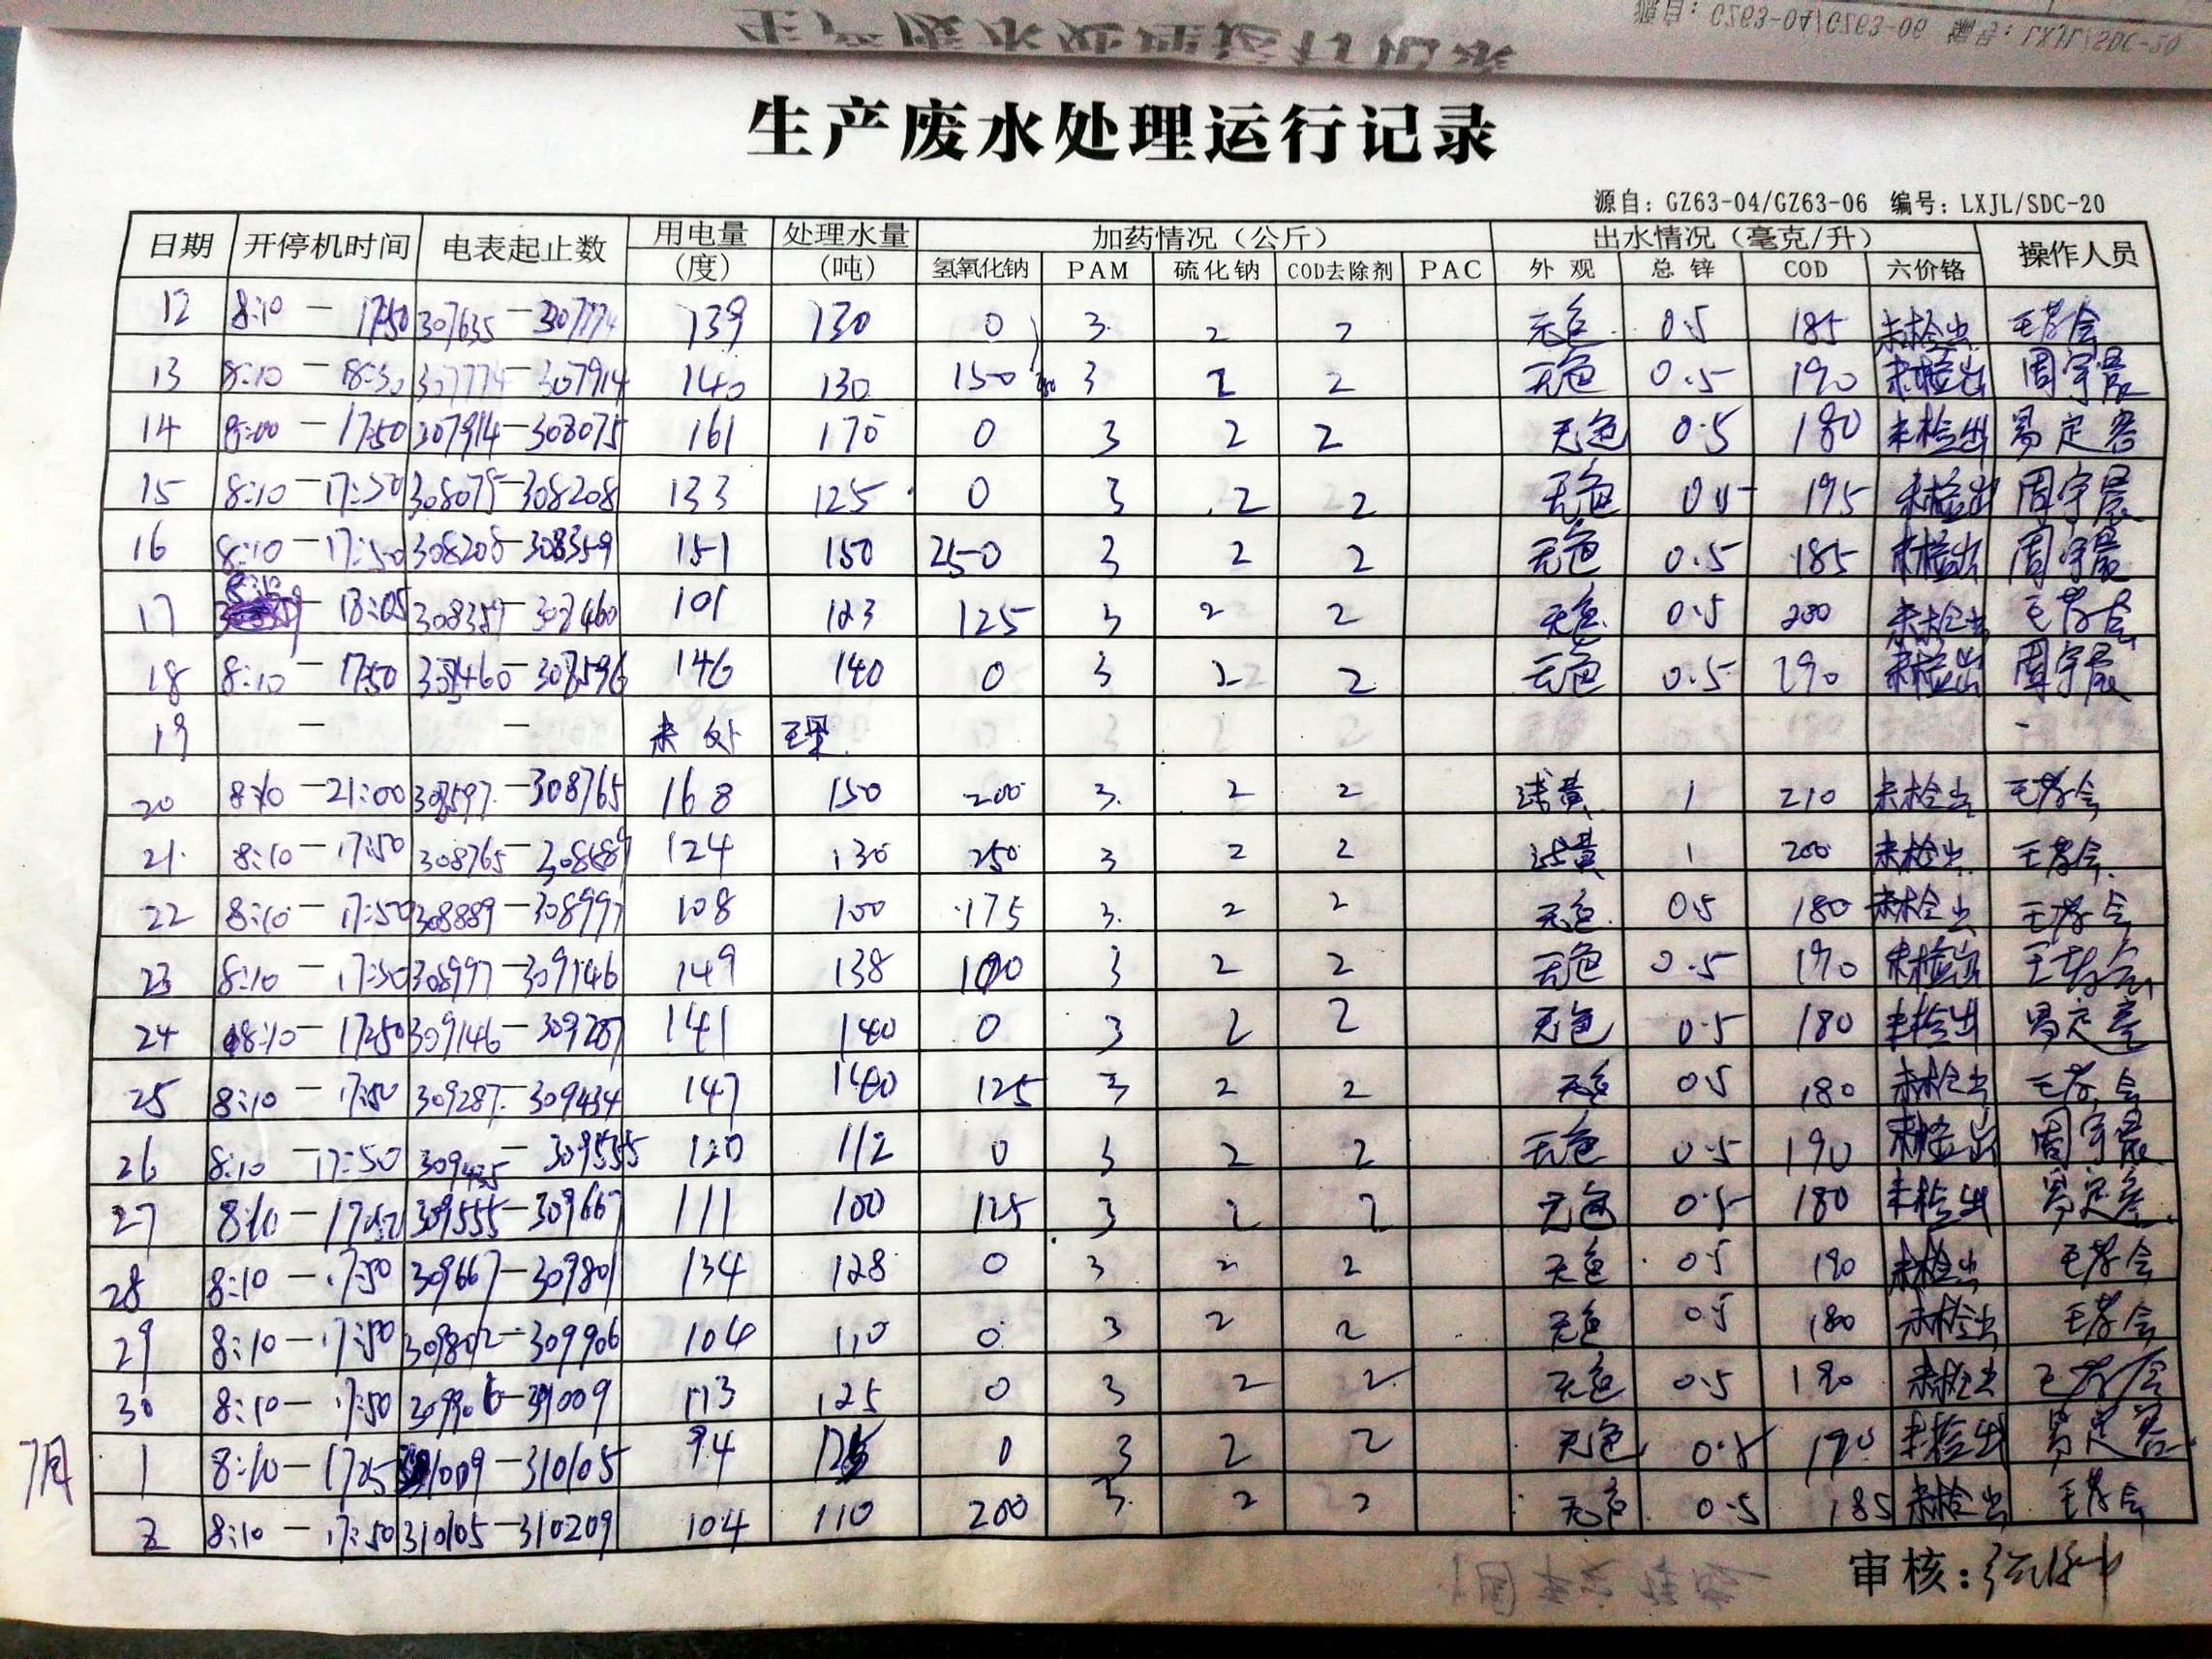 生产废水处理运行记录
源自：GZ63-04/GZ63-06 编号：LXJL/SDC-20
日期 开停机时间 电表起止数 用电量(度) 处理水量(吨) 加药情况（公斤） 出水情况（毫克/升） 操作人员
氢氧化钠 PAM 硫化钠 COD去除剂 PAC 外观 总锌 COD 六价铬
12 8:10 — 17:50 307635 — 307774 139 130 0 3 2 2 无色 0.5 185 未检出
13 8:10 — 18:30 307774 — 307914 140 130 150 3 2 2 无色 0.5 190 未检出 周宇晨
14 8:00 — 17:50 307914 — 308075 161 170 0 3 2 2 无色 0.5 180 未检出
15 8:10 — 17:50 308075 — 308208 133 125 0 3 2 2 无色 0.5 195 未检出 周宇晨
16 8:10 — 17:50 308208 — 308359 151 150 250 3 2 2 无色 0.5 185 未检出 周宇晨
17 8:10 — 18:05 308359 — 308460 101 123 125 3 2 2 无色 0.5 200 未检出
18 8:10 — 17:50 308460 — 308596 146 140 0 3 2 2 无色 0.5 190 未检出 周宇晨
19 — — 未处理 -
20 8:10 — 21:00 308597 — 308765 168 150 200 3 2 2 黄 1 210 未检出
21 8:10 — 17:50 308765 — 308889 124 130 250 3 2 2 黄 1 200 未检出
22 8:10 — 17:50 308889 — 308997 108 100 175 3 2 2 无色 0.5 180 未检出
23 8:10 — 17:50 308997 — 309146 149 138 100 3 2 2 无色 0.5 190 未检出
24 8:10 — 17:50 309146 — 309287 141 140 0 3 2 2 无色 0.5 180 未检出
25 8:10 — 17:50 309287 — 309434 147 140 125 3 2 2 无色 0.5 180 未检出
26 8:10 — 17:50 309435 — 309555 120 112 0 3 2 2 无色 0.5 190 未检出 周宇晨
27 8:10 — 309555 — 309667 111 100 125 3 2 2 无色 0.5 180 未检出
28 8:10 — 17:50 309667 — 309801 134 128 0 3 2 2 无色 0.5 190 未检出
29 8:10 — 17:50 309802 — 309906 104 110 0 3 2 2 无色 0.5 180 未检出
30 8:10 — 17:50 309906 — 113 125 0 3 2 2 无色 0.5 190 未检出
7月 1 8:10 — — 310105 94 0 3 2 2 无色 0.5 190 未检出
2 8:10 — 17:50 310105 — 310209 104 110 200 3 2 2 无色 0.5 185 未检出
审核：